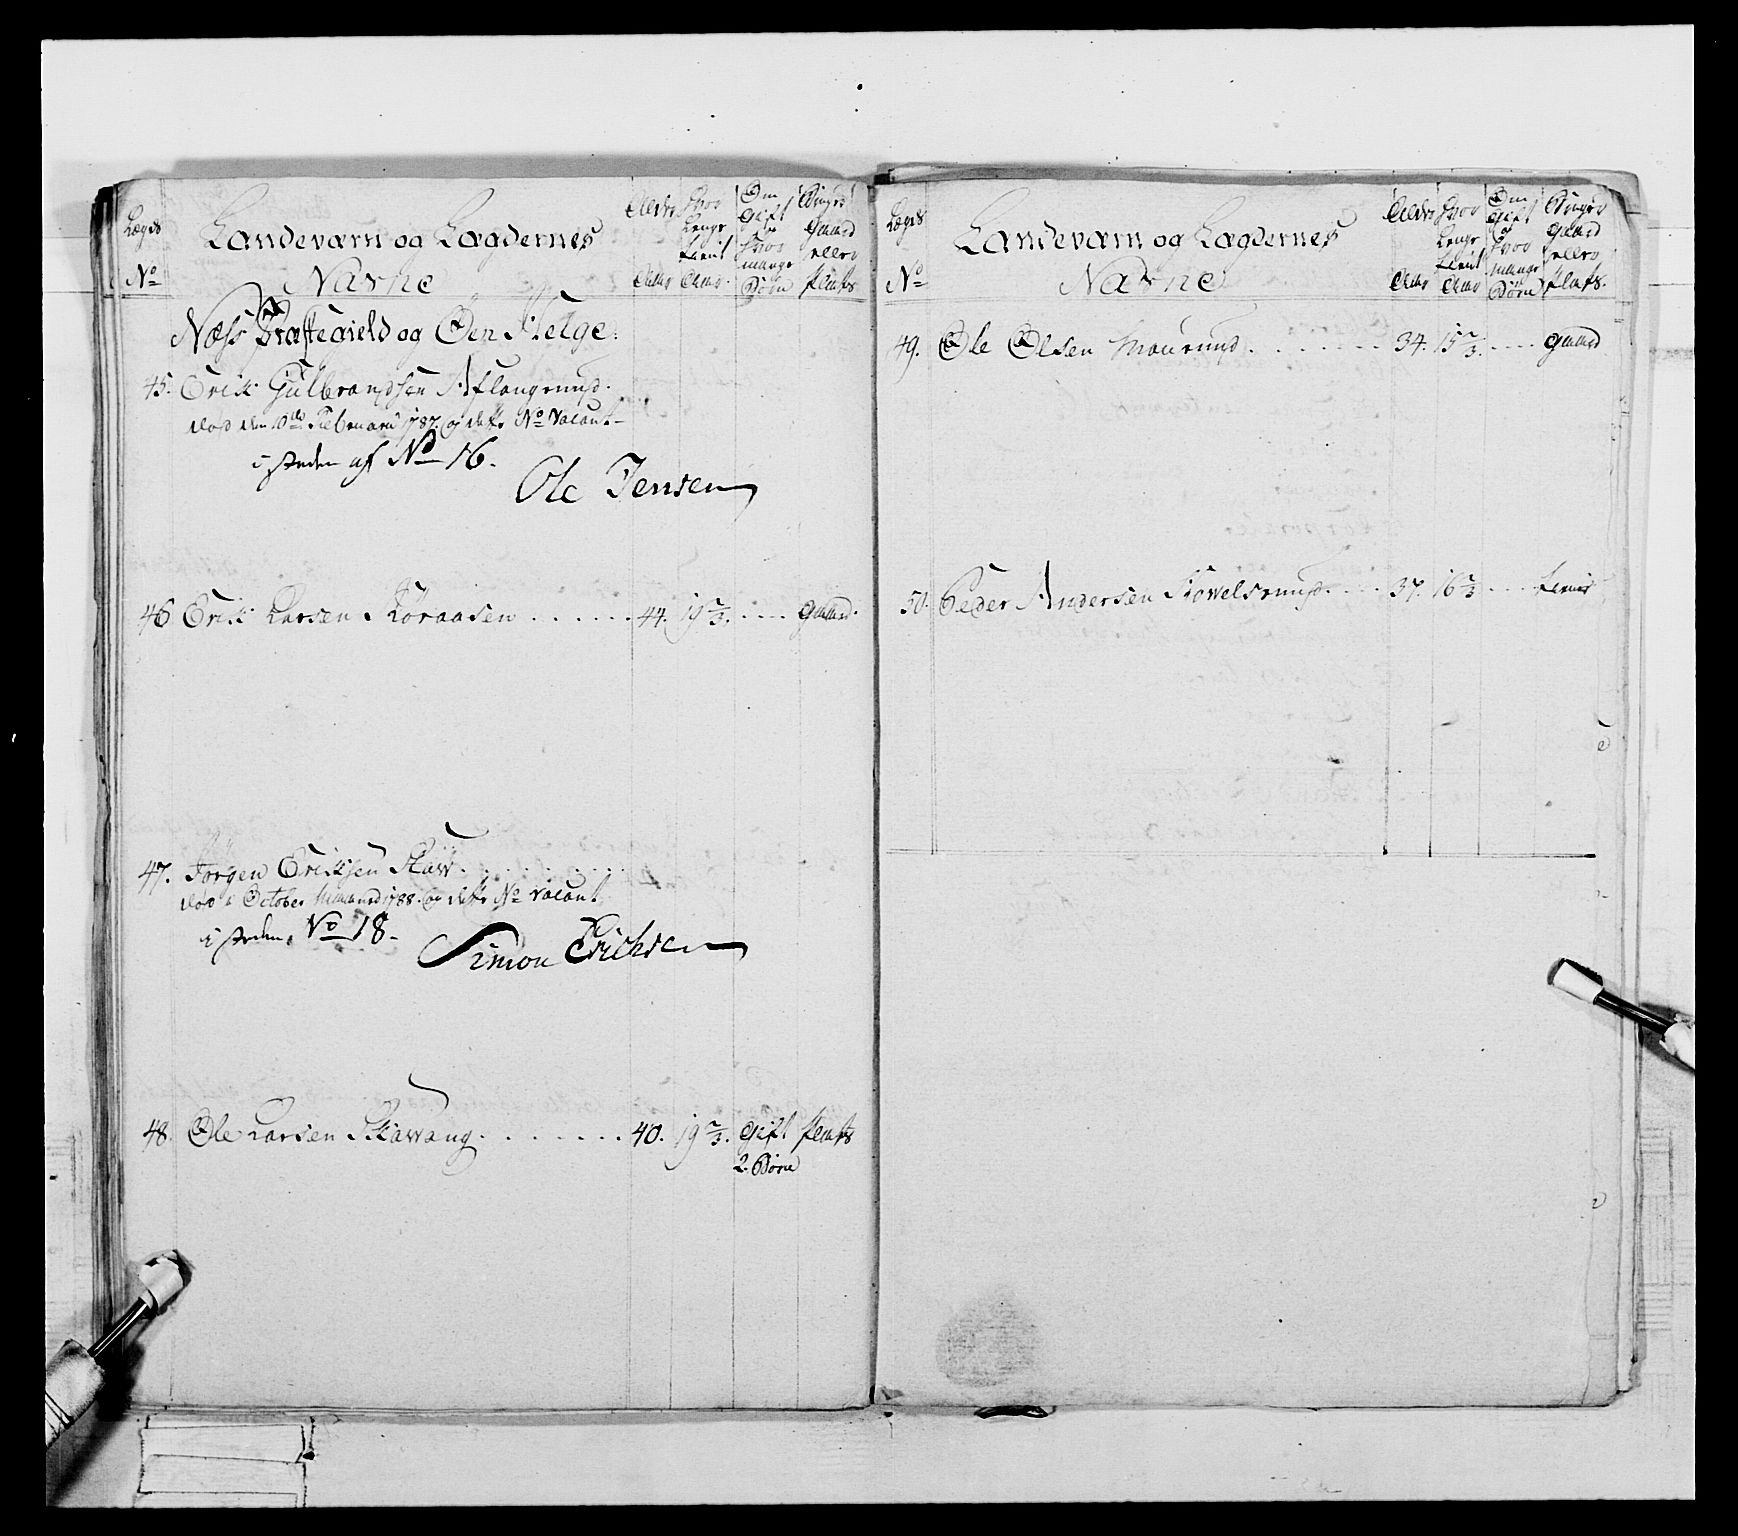 Lægds No
Landeværn og Lægdernes Navne
Alder Aar
Hvor Længe tient Aar
Om Gift og Hvor mange Børn
gaard eller Plads
Næss Præstegield og Øen Helge:
45. Erik Gulbrandsen Aflangrund.
død den 10de Februarii 1787. og dette No Vacant
i steden af No 16.
Ole Jensen
46 Erik Larsen Roraasen . . . . . . 44. 19 2/3. . . . . gaard.
47. Jørgen Eriksen Skaw . . . . . . . .
død i October Maaned 1788. og dette No vacant
i steden No 18.
Simon Erichsen
48. Ole Larsen Skawang . . . . . . . 40. 19 2/3. Gift Plads
2. Børn
Lægds No
Landeværn og Lægdernes Navne
Alder Aar
Hvor Længe tient Aar
Om Gift og Hvor mange Børn
gaard eller Plads.
49. Ole Olsen Maurund . . . . . . . 34. 15 2/3. . . . . gaard
50. Peder Andersen Howelsrund . . . . 37. 16 2/3 . . .